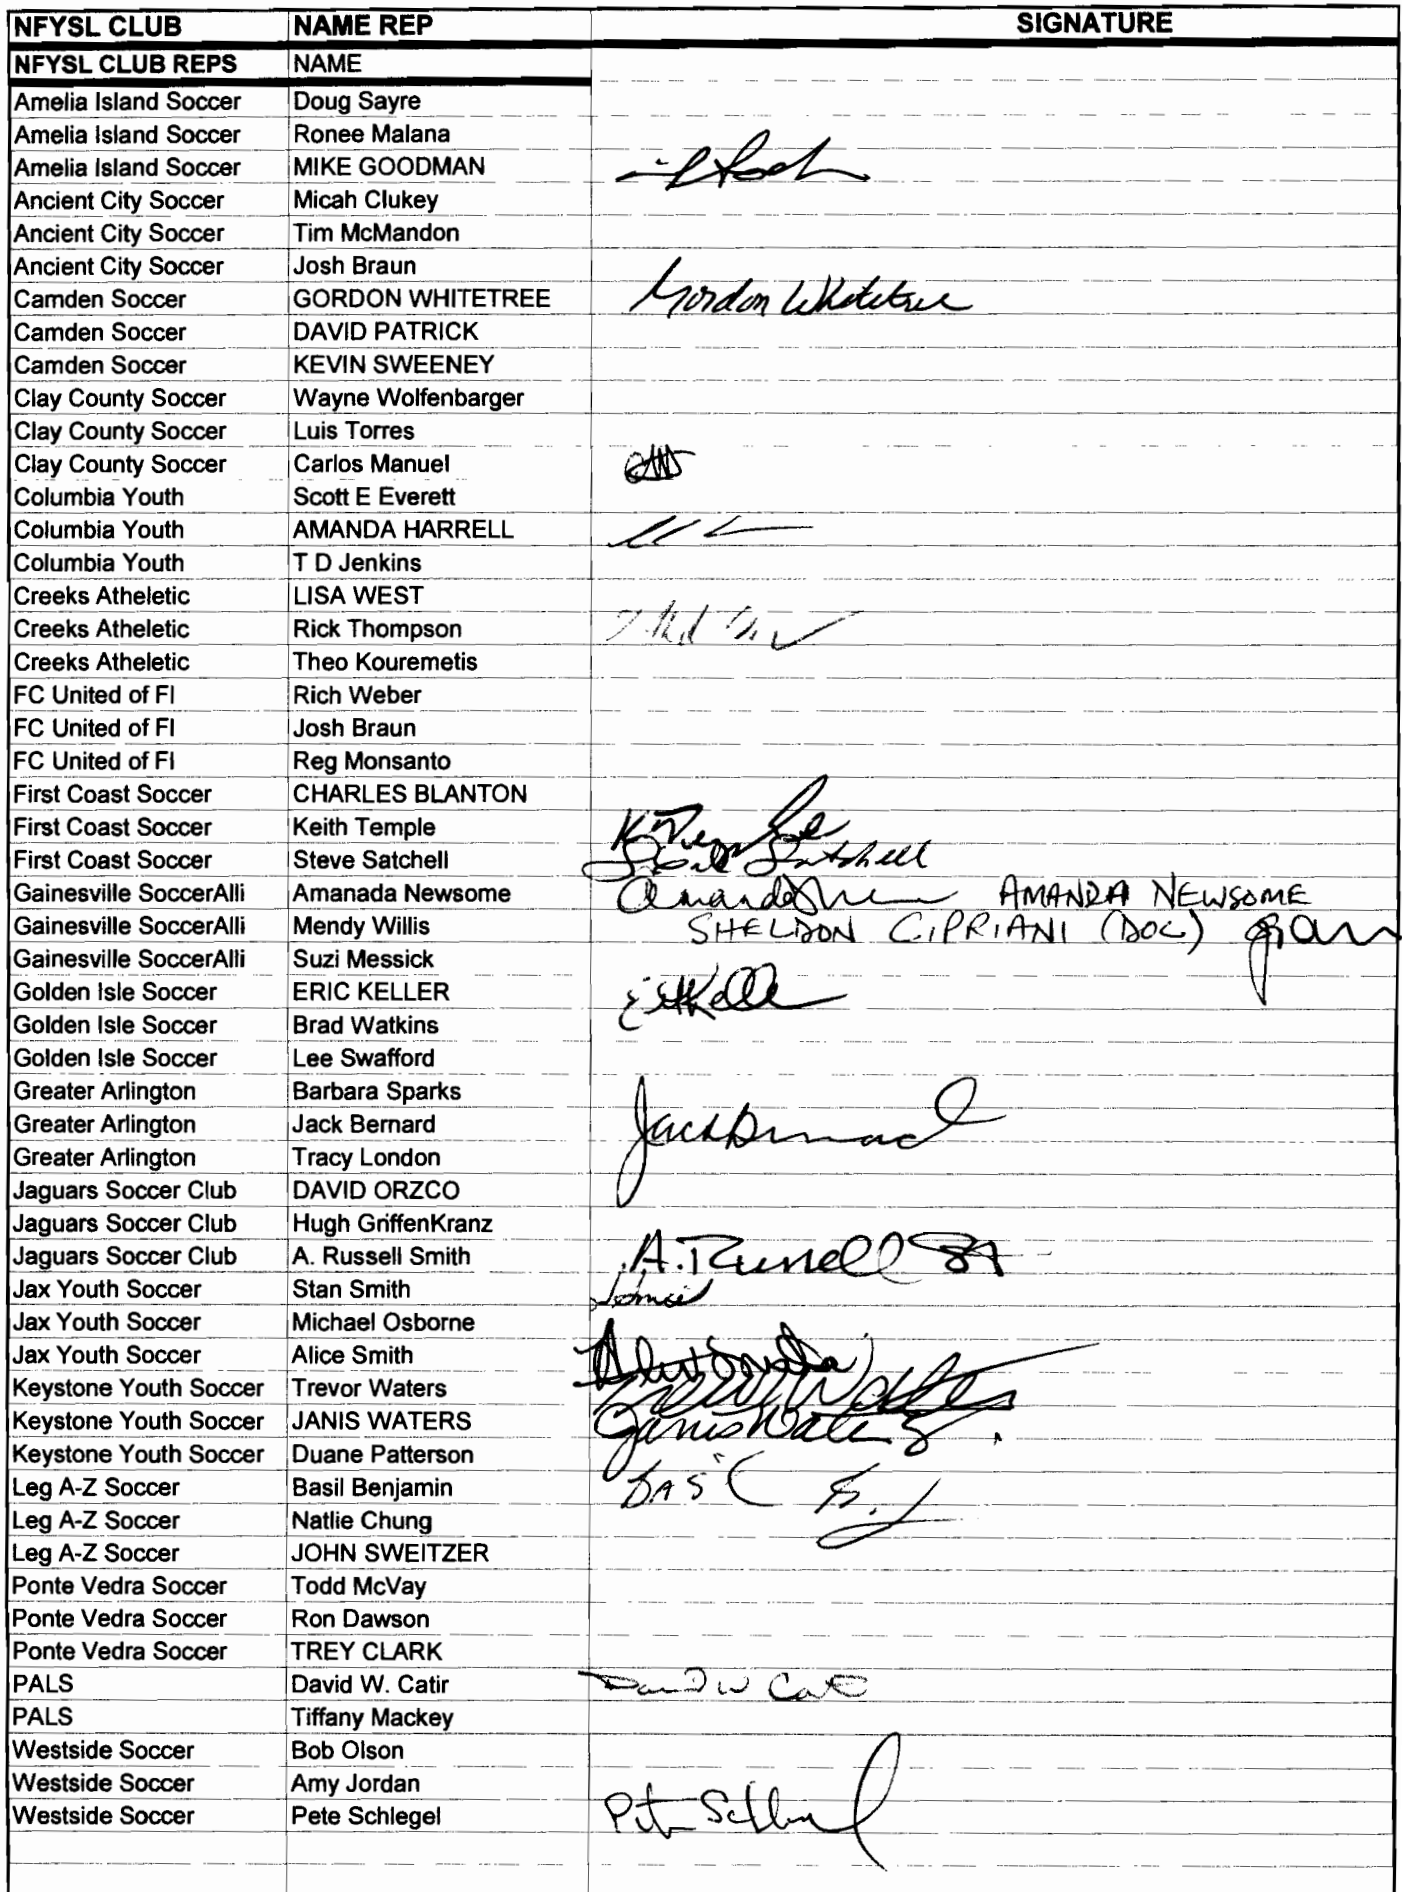 NFYSL CLUB NAME REP SIGNATURE
NFYSL CLUB REPS NAME
Amelia Island Soccer Doug Sayre
Amelia Island Soccer Ronee Malana
Amelia Island Soccer MIKE GOODMAN
Ancient City Soccer Micah Clukey
Ancient City Soccer Tim McMandon
Ancient City Soccer Josh Braun
Camden Soccer GORDON WHITETREE Gordon Whitetree
Camden Soccer DAVID PATRICK
Camden Soccer KEVIN SWEENEY
Clay County Soccer Wayne Wolfenbarger
Clay County Soccer Luis Torres
Clay County Soccer Carlos Manuel
Columbia Youth Scott E Everett
Columbia Youth AMANDA HARRELL
Columbia Youth T D Jenkins
Creeks Atheletic LISA WEST
Creeks Atheletic Rick Thompson
Creeks Atheletic Theo Kouremetis
FC United of Fl Rich Weber
FC United of Fl Josh Braun
FC United of Fl Reg Monsanto
First Coast Soccer CHARLES BLANTON
First Coast Soccer Keith Temple K Temple
First Coast Soccer Steve Satchell Satchell
Gainesville SoccerAlli Amanada Newsome Amanda AMANDA NEWSOME
Gainesville SoccerAlli Mendy Willis SHELDON CIPRIANI (DOC)
Gainesville SoccerAlli Suzi Messick
Golden Isle Soccer ERIC KELLER
Golden Isle Soccer Brad Watkins
Golden Isle Soccer Lee Swafford
Greater Arlington Barbara Sparks
Greater Arlington Jack Bernard Jack Bernard
Greater Arlington Tracy London
Jaguars Soccer Club DAVID ORZCO
Jaguars Soccer Club Hugh GriffenKranz
Jaguars Soccer Club A. Russell Smith A. Russell
Jax Youth Soccer Stan Smith
Jax Youth Soccer Michael Osborne
Jax Youth Soccer Alice Smith
Keystone Youth Soccer Trevor Waters
Keystone Youth Soccer JANIS WATERS Janis Waters
Keystone Youth Soccer Duane Patterson
Leg A-Z Soccer Basil Benjamin BASil
Leg A-Z Soccer Natlie Chung
Leg A-Z Soccer JOHN SWEITZER
Ponte Vedra Soccer Todd McVay
Ponte Vedra Soccer Ron Dawson
Ponte Vedra Soccer TREY CLARK
PALS David W. Catir David W Cat
PALS Tiffany Mackey
Westside Soccer Bob Olson
Westside Soccer Amy Jordan
Westside Soccer Pete Schlegel Pete Schlegel